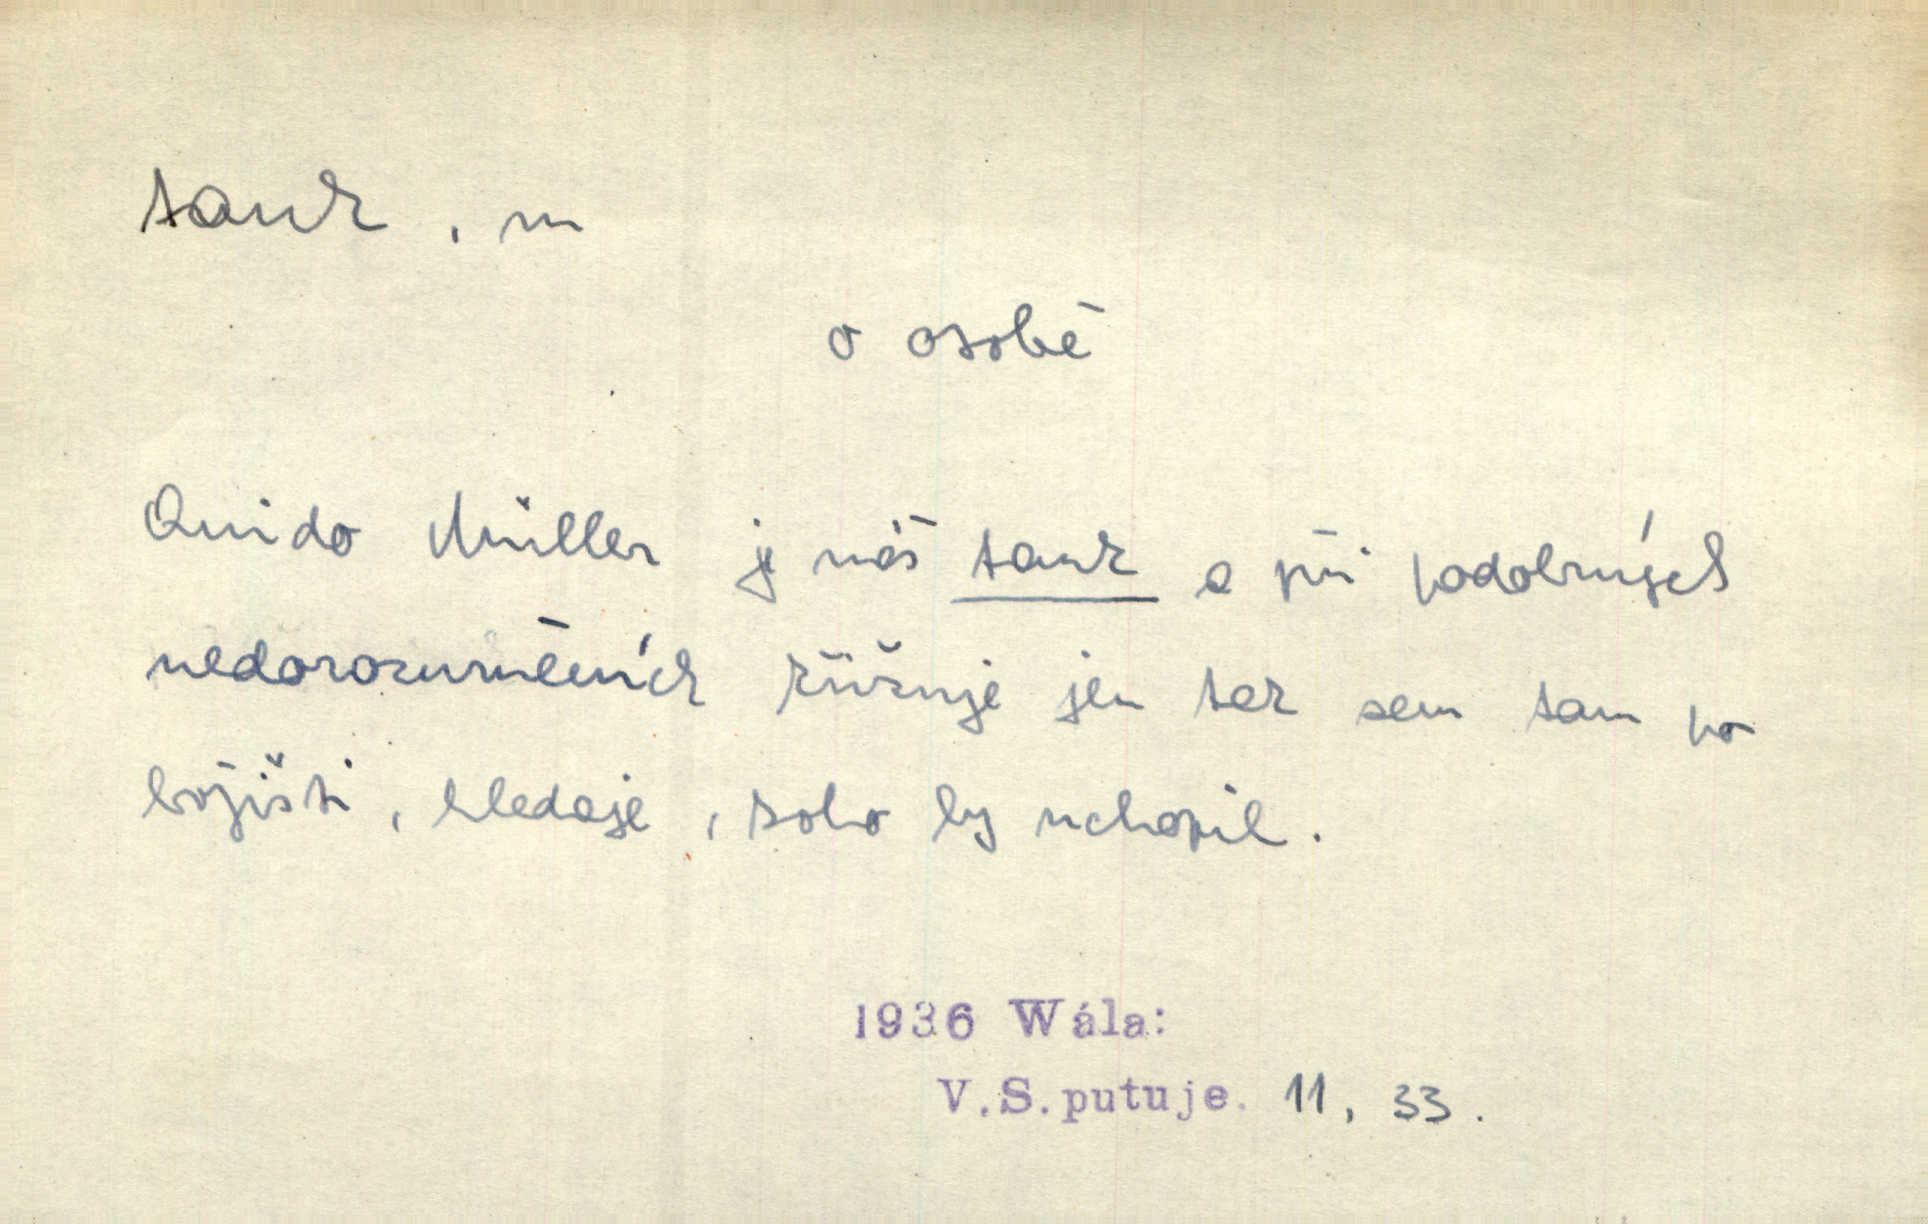 tank, m
o osobě
Quido Müller je náš tank a při podobných
nedorozuměních křižuje jen tak sem tam po
bojišti, hledaje, koho by uchopil.
1936 Wála:
V.S.putuje. 11, 33.